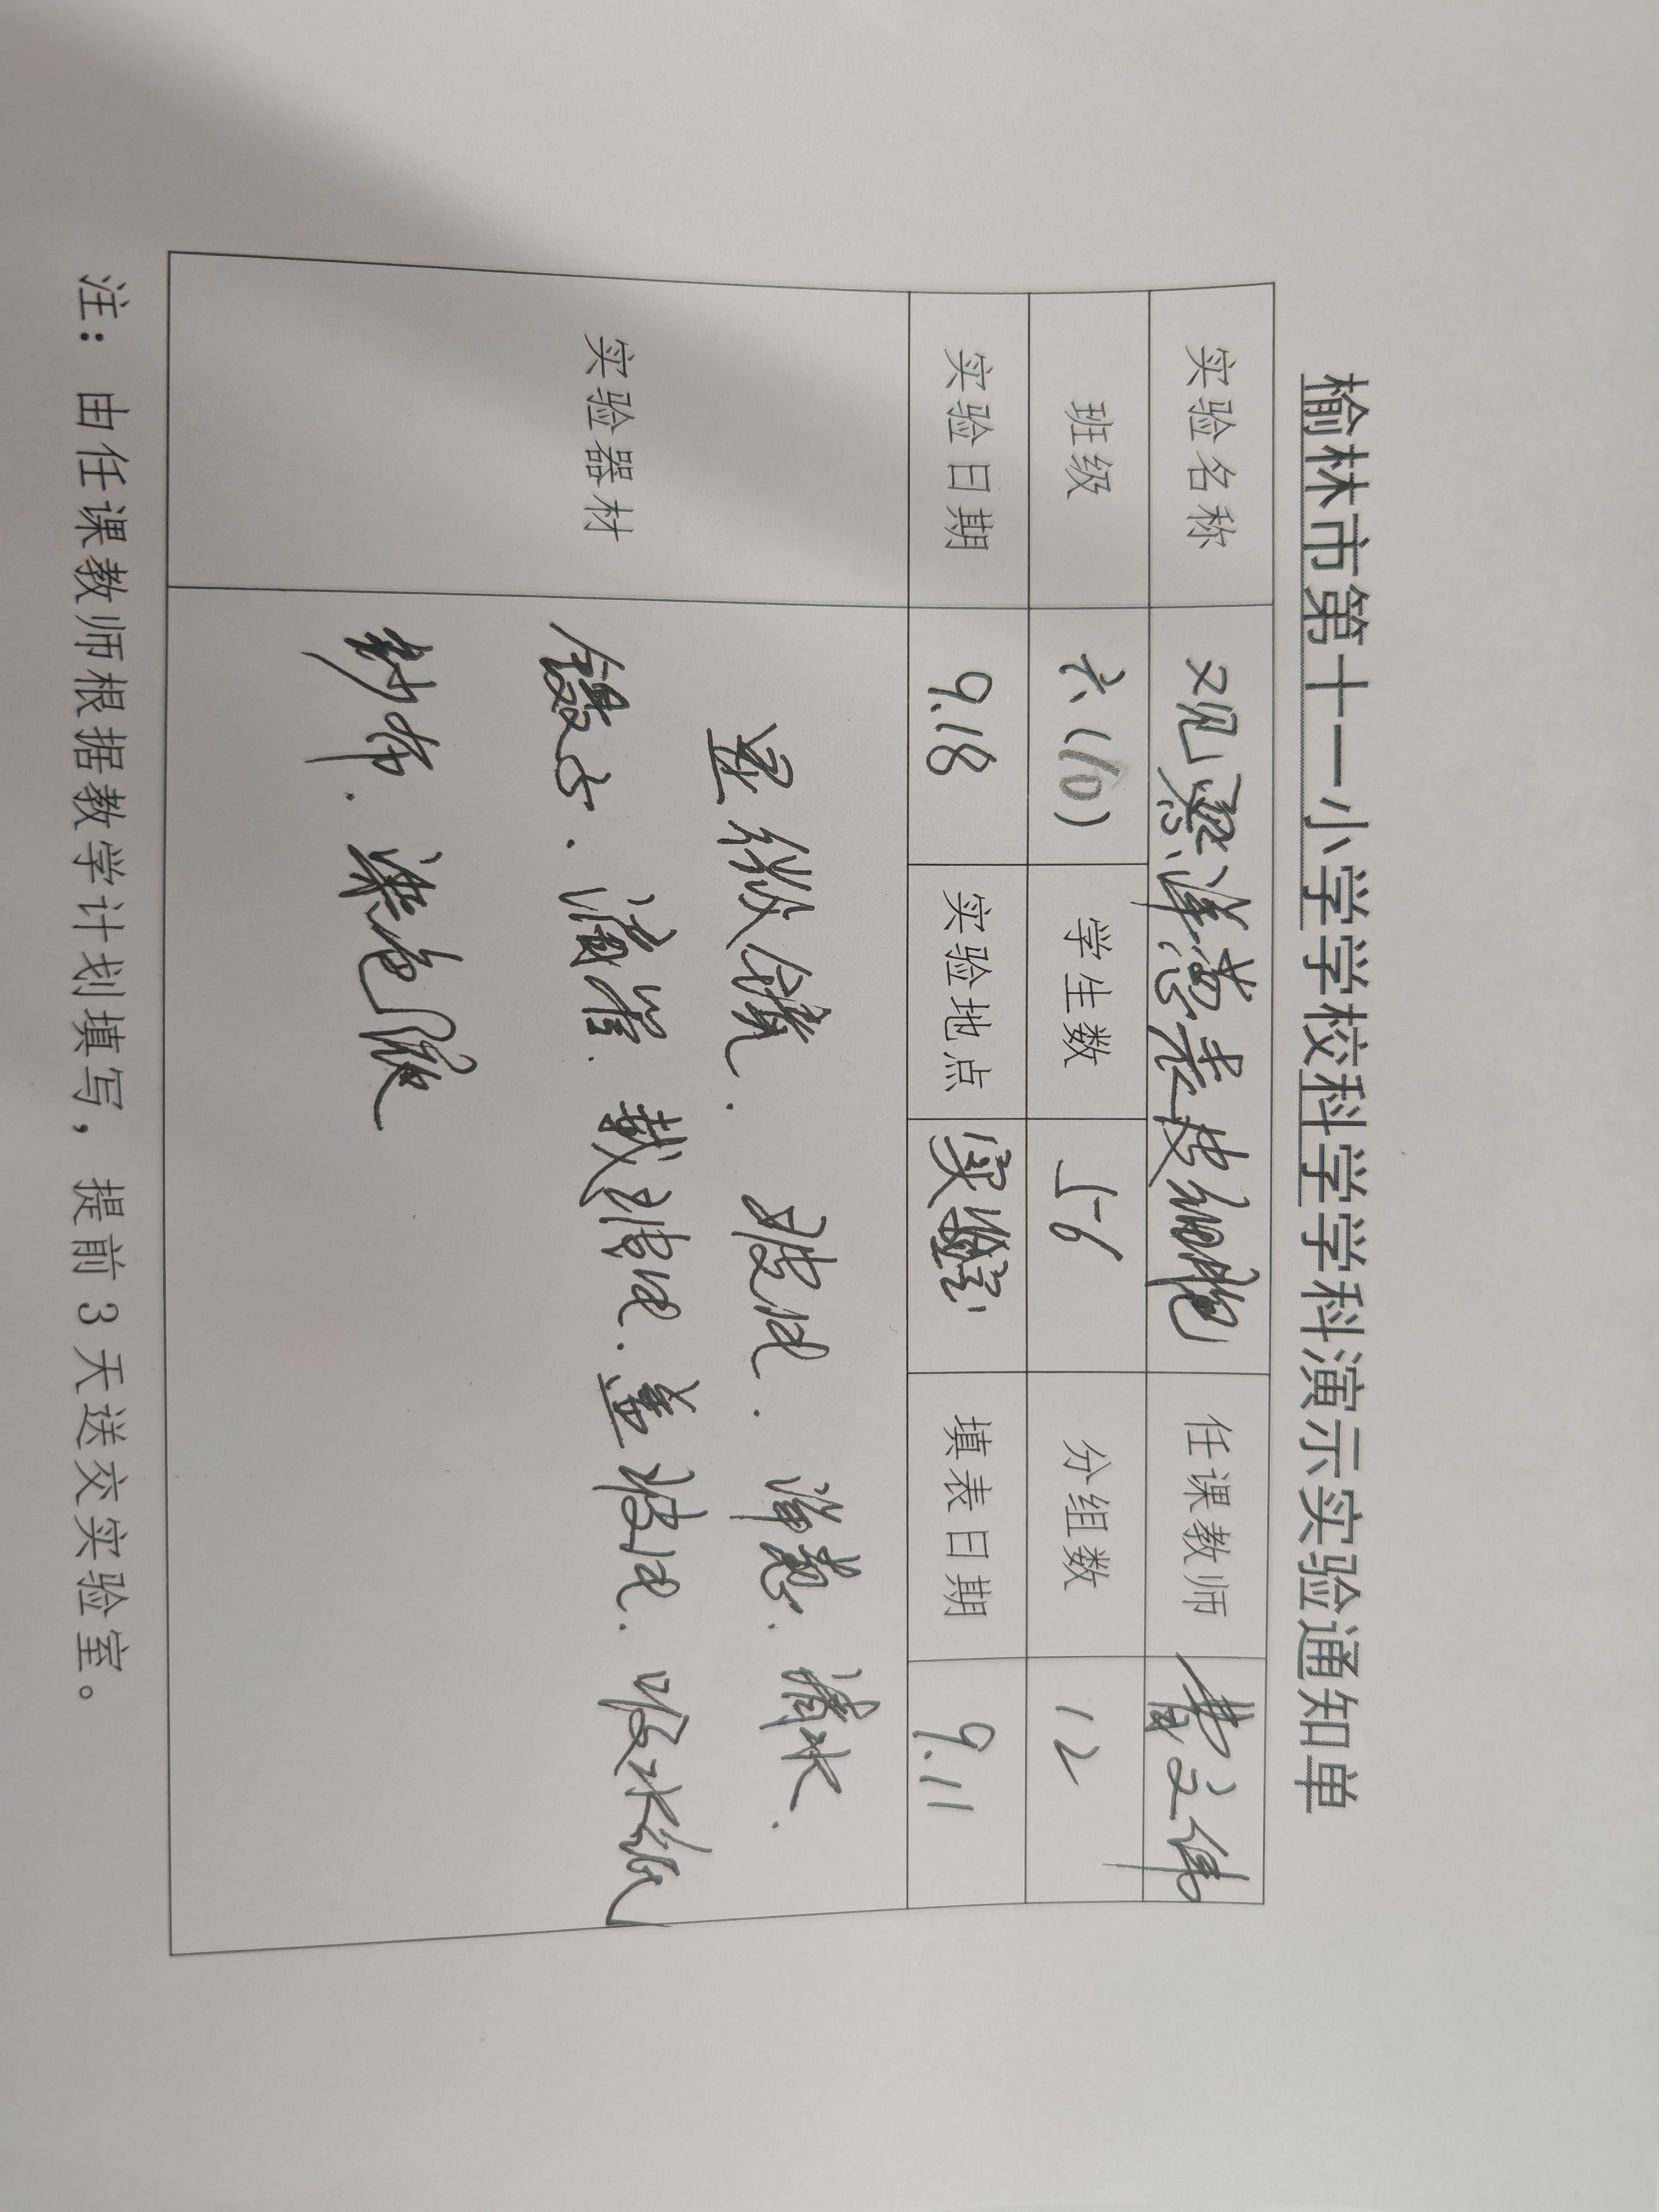 榆林市第十一小学学校科学学科演示实验通知单
实验名称 观察洋葱表皮细胞 任课教师 曹文伟
班级 六(10) 学生数 56 分组数 12
实验日期 9.18 实验地点 实验室 填表日期 9.11
实验器材
显微镜. 玻片. 洋葱. 清水.
镊子. 滴管. 载玻片. 盖玻片. 吸水纸
纱布. 染色液
注：由任课教师根据教学计划填写，提前3天送交实验室。